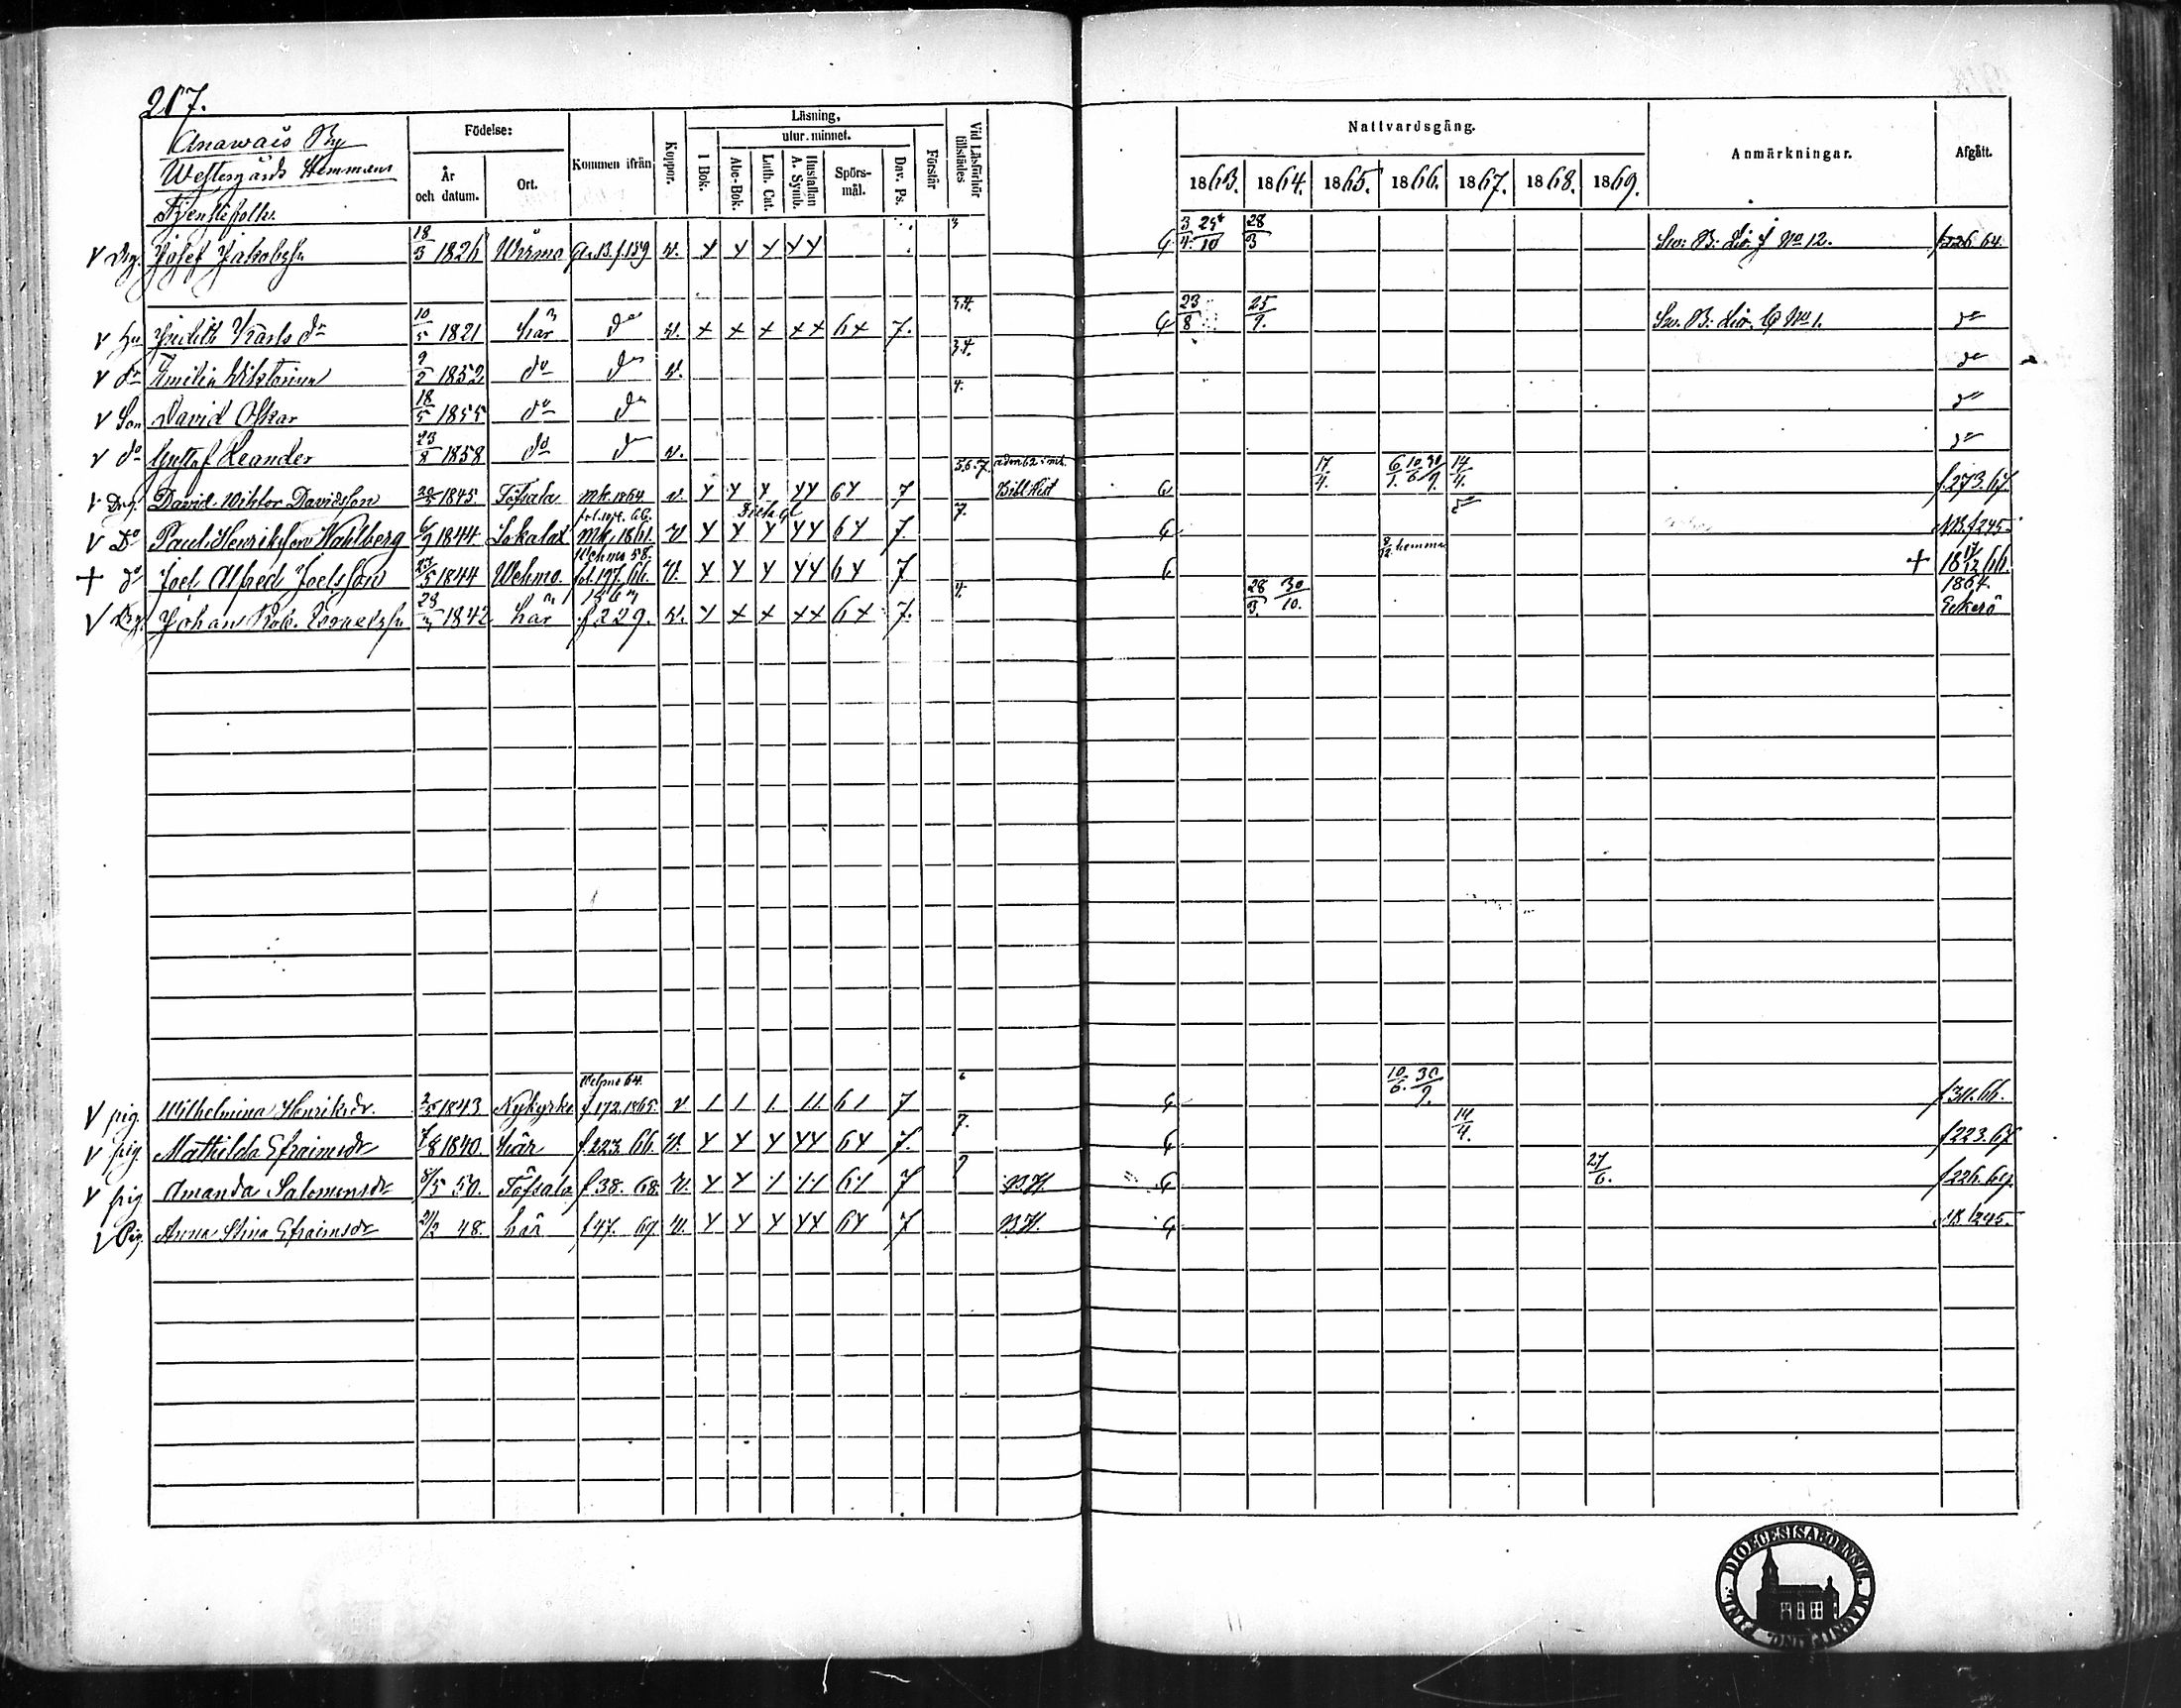 217.
Anawais By
Westergårds Hemmans
Tjenstefolk.
Födelse:
År och datum.
Ort.
Kommen ifrån
Koppor.
Läsning,
utur minnet.
I Bok.
Abc-Bok.
Luth. Cat.
Hustaflan A. Symb.
Spörs-mål.
Dav. Ps.
Förstår
Vid Läsförhör tillstädes
Nattvardsgång.
1863. 1864. 1865. 1866. 1867. 1868. 1869.
Anmärkningar.
Afgått.
v Drg. Josef Jakobss. 18/3 1826 Wirmo Gl. B. f. 159 v. 3 G 3/4 25/10 28/3 Sw: B: Lit. J No 12. f 226 64.
v Hu Judith Karlsdr 10/5 1821 här do v. 6 7. 3.4. G 23/8 25/9. Sw. B: Lit. No 1. do
v dr Emilia Wiktorina 9/2 1852 do do v. 3.4. do
v Son David Oskar 18/5 1855 do do 4. do
v do Gustaf Leander 23/8 1858 do do v. do
v Drg. David Wiktor Davidsson 1845 Töfsala mk. 1864 v 6 7 5.6.7. Bibl. Hist G 17/4. 6/1. 10/6 30/9. 14/4. f. 273. 67.
v Do Paul Henriksson Wahlberg 6/9 1844 Lokalax Mk. 1861. v 6 7. 7. G do NB. f 245.
+ do Joel Alfred Joelsson 23/5 1844 Wehmo. Wehmo 58. fol. 197. 66. v. 6 7. G 8/12. hemma + 18 17/12 66.
v Drg. Johan Rob. Israelss. 28/3 1842 här f 229. v. 6 7. 4. 28/3. 30/10. 1864. Eckerö
v pig. Wilhelmina Henriksdr. 2/5 1843 Nykyrko Wehmo 64. f 172. 1865. v 1 1 1. 11. 61 7 6 G 10/6. 30/9. f 311. 66.
v pig. Mathilda Efraimsdr 7/8 1840. här f. 223. 66. v. 6 7. 7. G 14/4. f 223. 67
v pig Amanda Salomonsdr 8/5 50. Töfsala f 38. 68. v. 61 7 9 B.H. G 27/6. f 226. 69
v Pig. Anna Stina Efraimsdr 21/2 48. här f 47. 69. v. 6 7 B.H. G NB. f 245.
FINL. DIOECESIS ABOENSIS. MAGNI DUC.